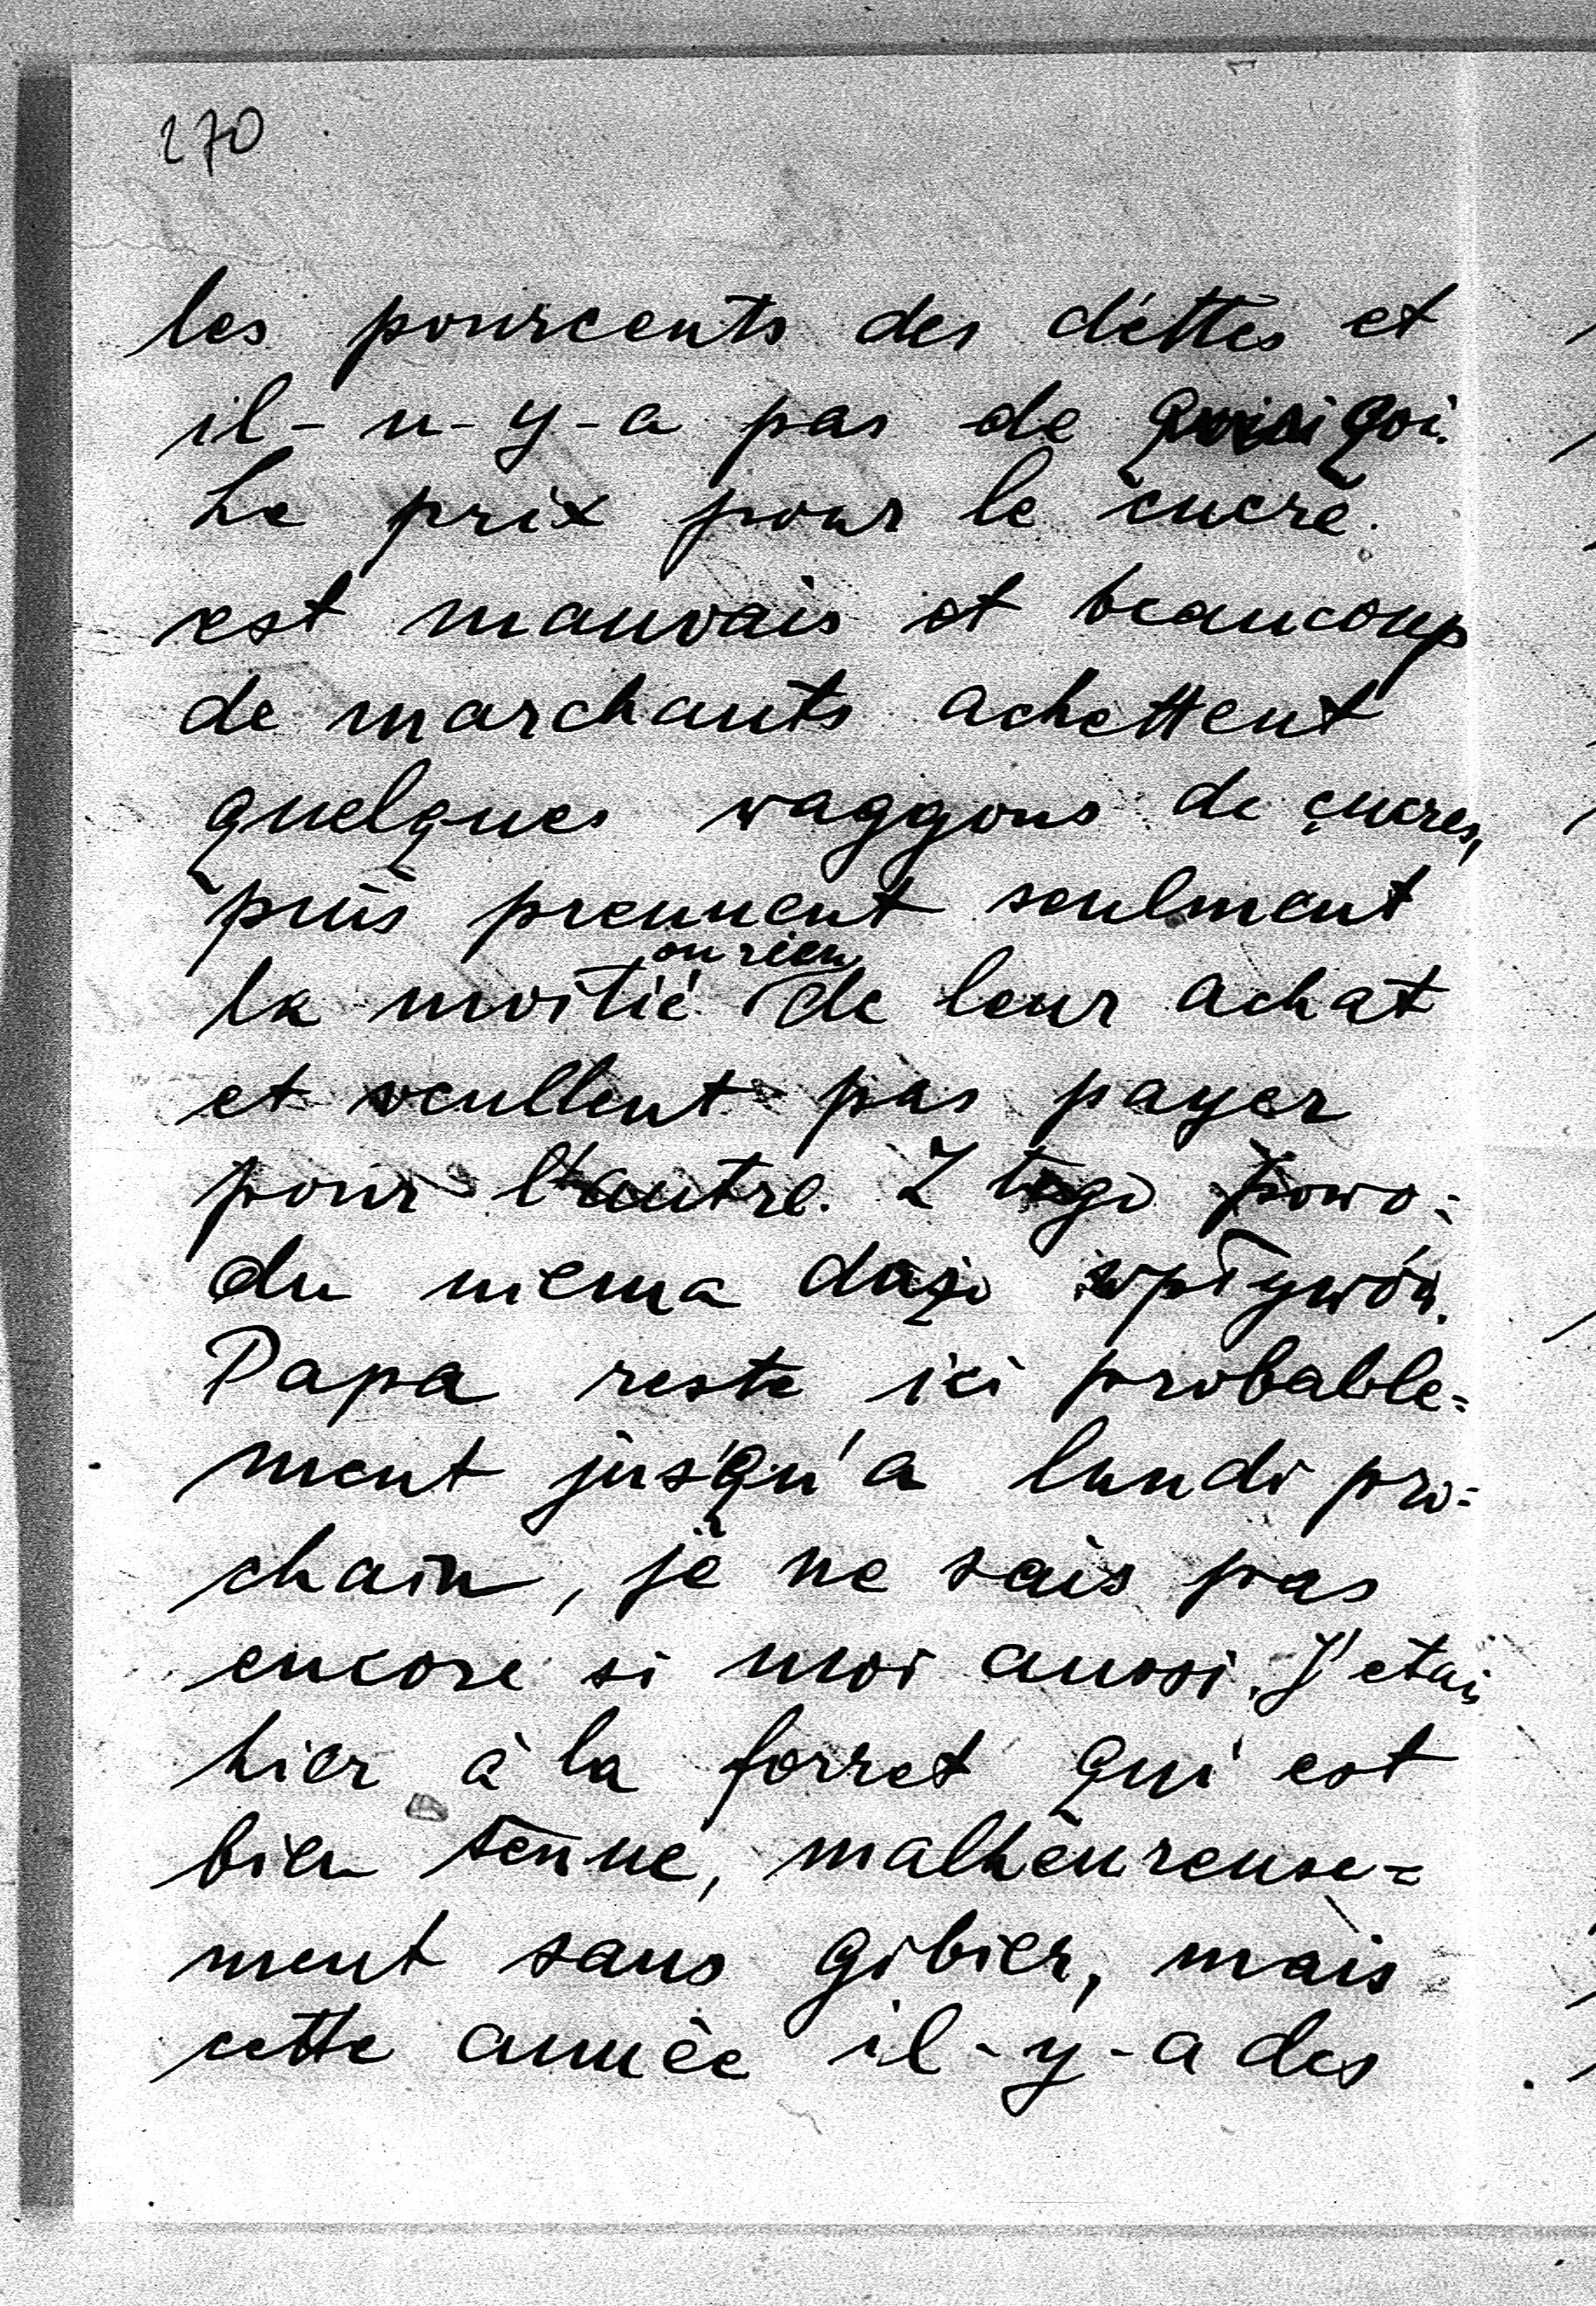 270
les pourcents des déttes et
il-n-y-a pas de qoi.
Le prix pour le cucre
est mauvais et beaucoup
de marchants achettent
quelques waggons de çucres,
puis prennent seulment
la moitié ou rien de leur achat
et veullent pas payer
pour l'autre. Z tego powo-
du niema dużo wpływów.
Papa reste ici probable-
ment jus'qu'a lundi pro-
chain, je ne sais pas
encore si moi aussi. J'etais
hier à la forret qui est
bien tenue, malheureuse-
ment sans gibier, mais
cette annèe il-y-a des